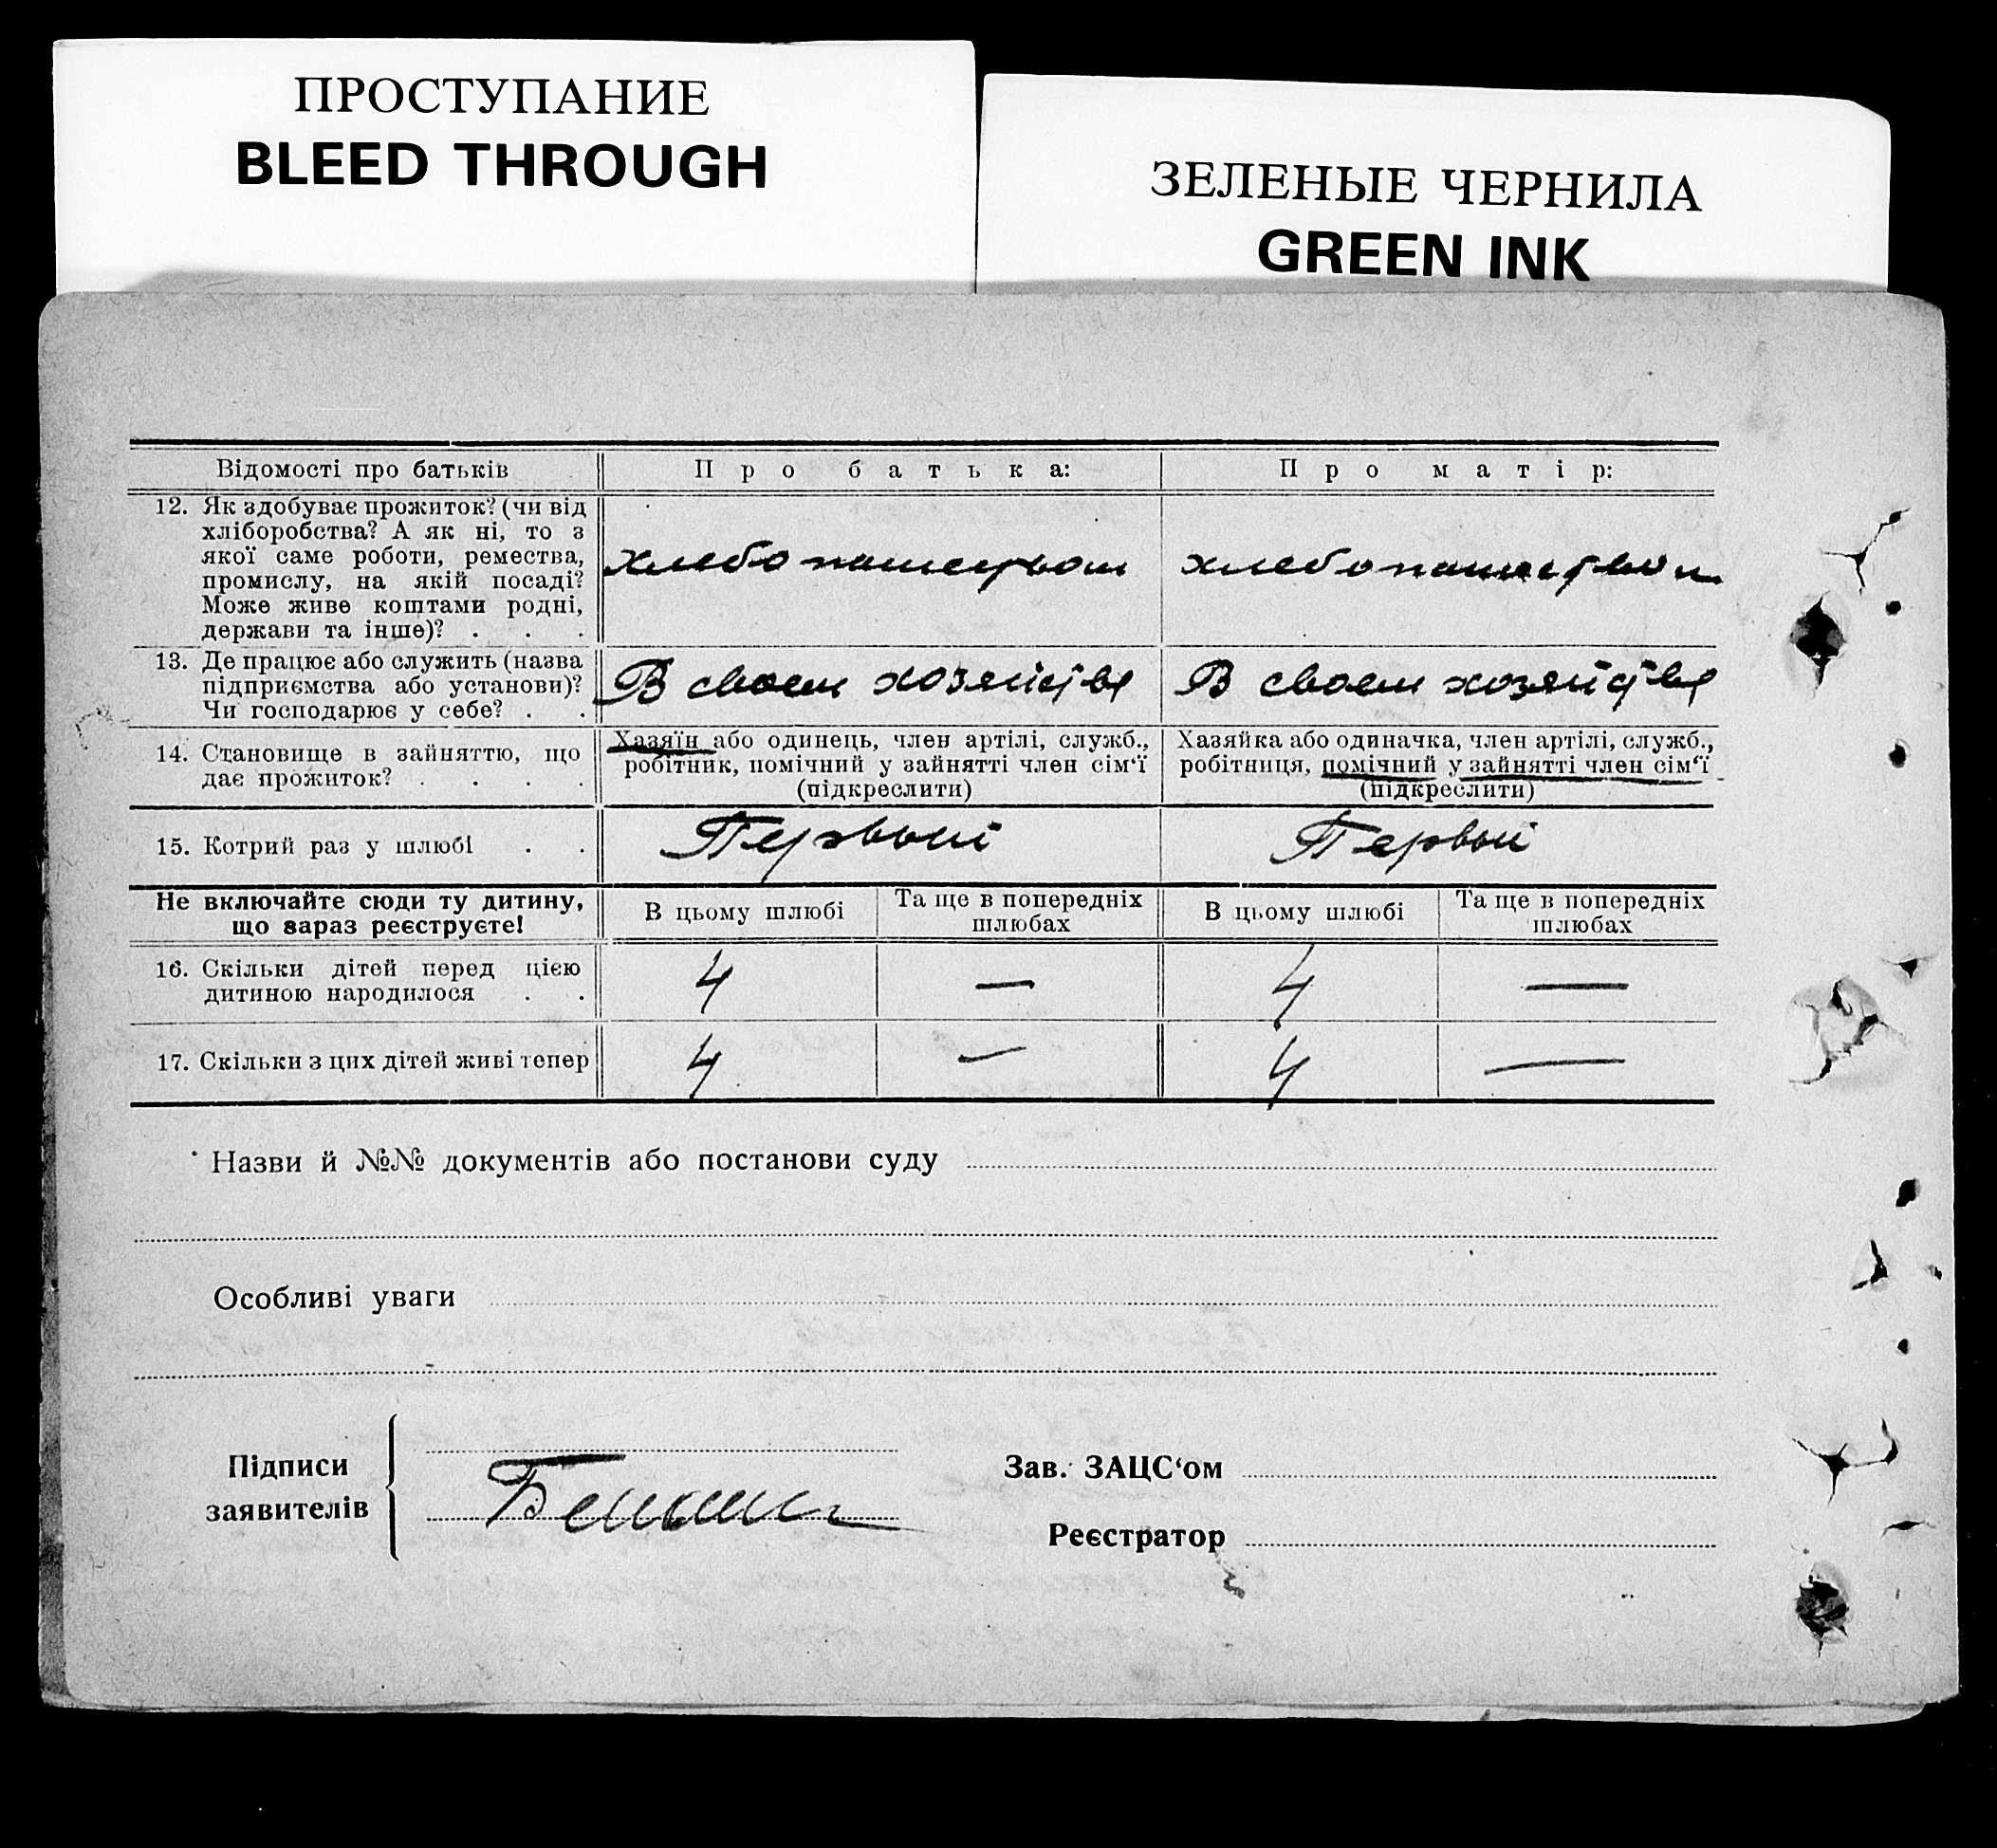 ПРОСТУПАНИЕ
BLEED THROUGH
ЗЕЛЕНЫЕ ЧЕРНИЛА
GREEN INK
Відомості про батьків
Про батька:
Про матір:
12. Як здобуває прожиток? (чи від
хліборобства? А як ні, то з
якої саме роботи, ремества,
промислу, на якій посаді?
Може живе коштами родні,
держави та інше)? . . .
хлебопашеством
хлебопашеством
13. Де працює або служить (назва
підприємства або установи)?
Чи господарює у себе? . .
В своем хозяйстве
В своем хозяйстве
14. Становище в зайняттю, що
дає прожиток? . . . .
Хазяїн або одинець, член артілі, служб.,
робітник, помічний у зайнятті член сім‘ї
(підкреслити)
Хазяйка або одиначка, член артілі, служб.,
робітниця, помічний у зайнятті член сім‘ї
(підкреслити)
15. Котрий раз у шлюбі . .
Первый
Первый
Не включайте сюди ту дитину,
що зараз реєструєте!
В цьому шлюбі
Та ще в попередніх
шлюбах
В цьому шлюбі
Та ще в попередніх
шлюбах
16. Скільки дітей перед цією
дитиною народилося . .
4 — 4 —
17. Скільки з цих дітей живі тепер
4 — 4 —
Назви й №№ документів або постанови суду
Особливі уваги
Підписи
заявителів
Зав. ЗАЦС‘ом
Реєстратор